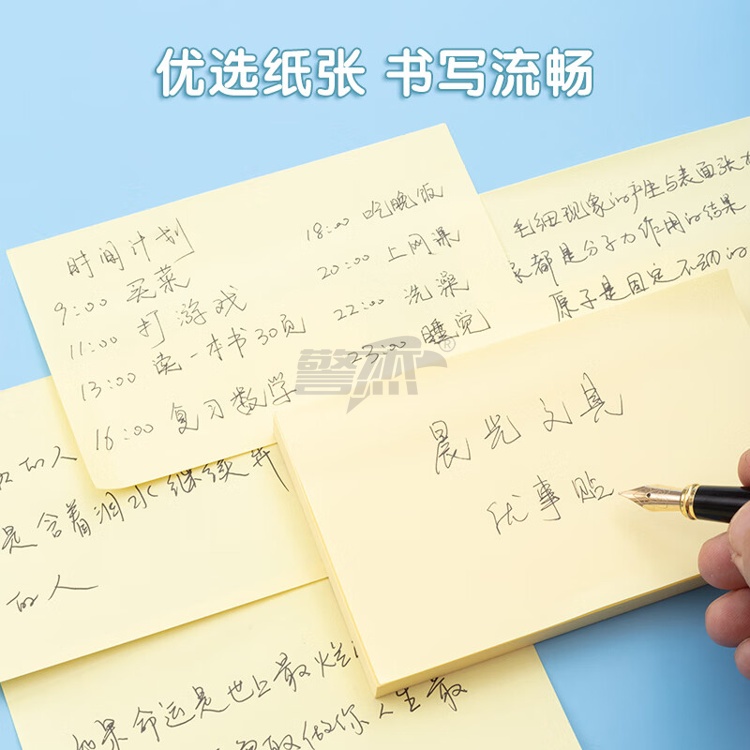 优选纸张 书写流畅
时间计划
9:00 买菜
11:00 打游戏
13:00 读一本书30页
16:00 复习数学
18:00 吃晚饭
20:00 上网课
22:00 洗澡
23:00 睡觉
警杰®
毛细现象的产生与表面张
都是分子力作用的结果
原子是固定不动的
晨光文具
优事贴
的人
是含着泪水继续奔
的人
如果命运是世上最
取做你人生最